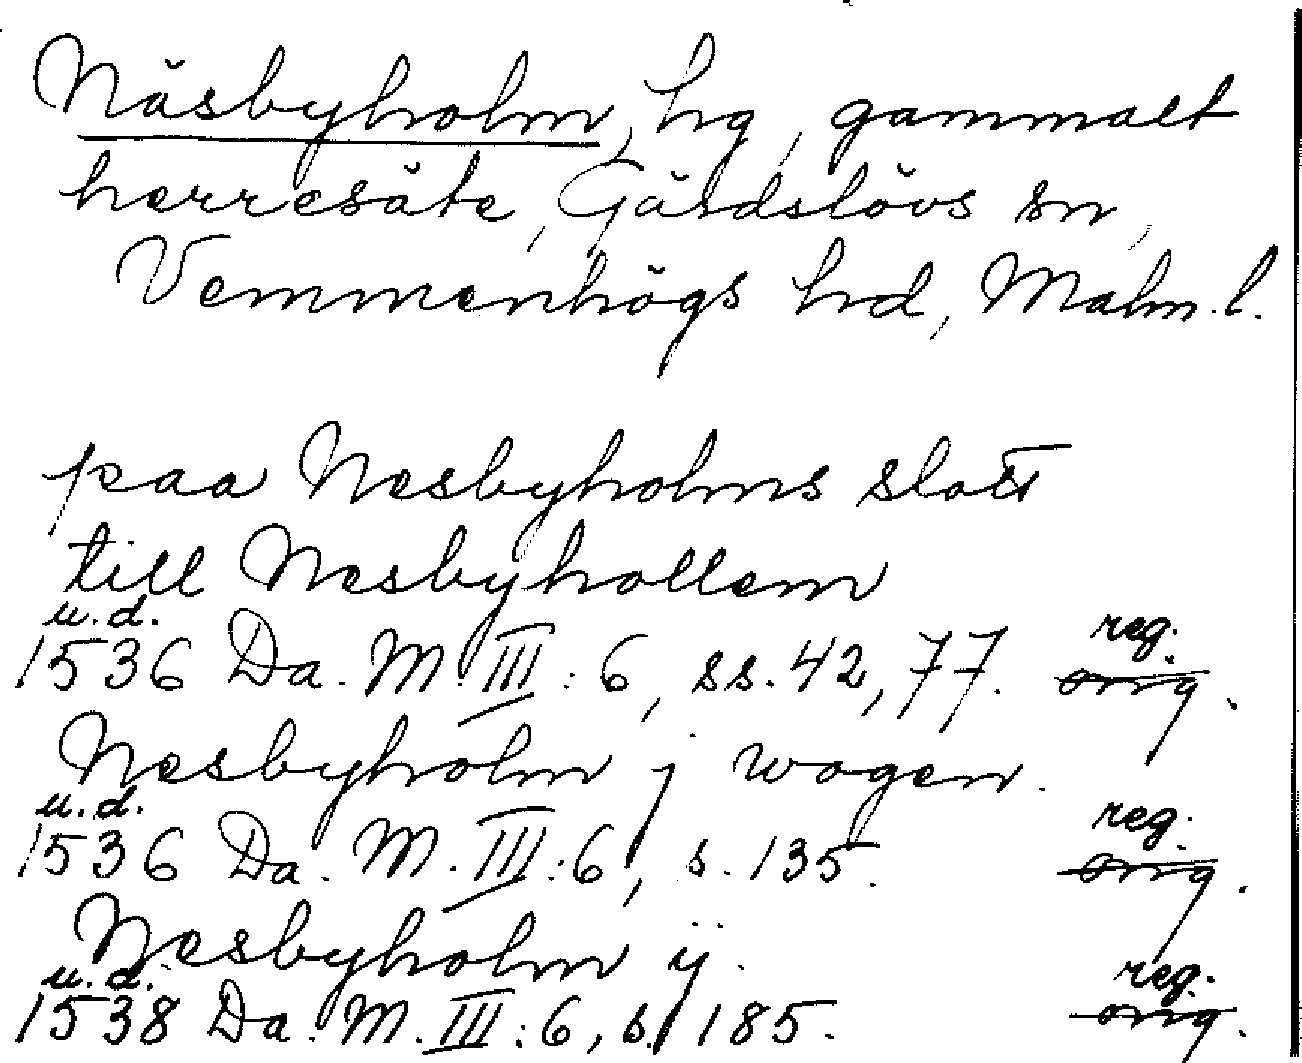 Näsbyholm, hg, gammalt
herresäte, Gärdslövs sn,
Vemmenhögs hd, Malm. l.
paa Nesbyholms slott
till Nesbyhollem
u.d. reg.
1536 Da. M. III: 6, ss. 42, 77. orig.
Nesbyholm j wogen.
u.d. reg.
1536 Da. M. III: 6, s. 135. orig.
Nesbyholm ÿ.
u.d. reg.
1538 Da. M. III: 6, s. 185. orig.